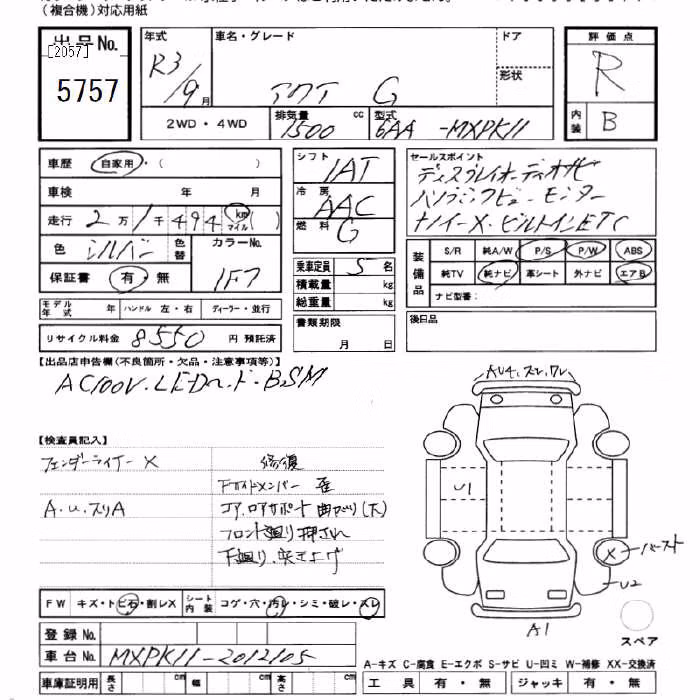 （複合機）対応用紙
出品No.
[2057]
5757
年式 R3/9月
車名・グレード アクア G
ドア
形状
評価点 R
内装 B
2WD・4WD
排気量 1500 cc
型式 6AA-MXPK11
車歴 自家用・（ ）
車検 年 月
走行 2万1千494 km マイル（ ）
色 シルバー 色替 カラーNo. 1F7
保証書 有・無
シフト IAT
冷房 AAC
燃料 G
セールスポイント
ディスプレイオーディオナビ
パノラミックビューモニター
ナノイーX・ビルトインETC
乗車定員 5名
積載量 kg
総重量 kg
装備品 S/R 純A/W P/S P/W ABS
純TV 純ナビ 革シート 外ナビ エアB
ナビ型番：
モデル年式 年 ハンドル 左・右 ディーラー・並行
リサイクル料金 8550 円 預託済
書類期限
月 日
後日品
【出品店申告欄（不良箇所・欠品・注意事項等）】
AC100V.LEDヘッド.BSM
【検査員記入】
フェンダーライナー X
修復
Fサイドメンバー 歪
A.U.スリA
コア.ロアサポート曲がり(大)
フロント廻り押され
下廻り.突き上げ
AU4.スレ.ワレ
U1
バースト
U2
A1
スペア
FW キズ・トビ石・割レX
シート内装 コゲ・穴・汚レ・シミ・破レ・スレ
登録No.
車台No. MXPK11-2012105
車庫証明用 長さ cm 幅 cm 高さ cm
A-キズ C-腐食 E-エクボ S-サビ U-凹ミ W-補修 XX-交換済
工具 有・無 ジャッキ 有・無